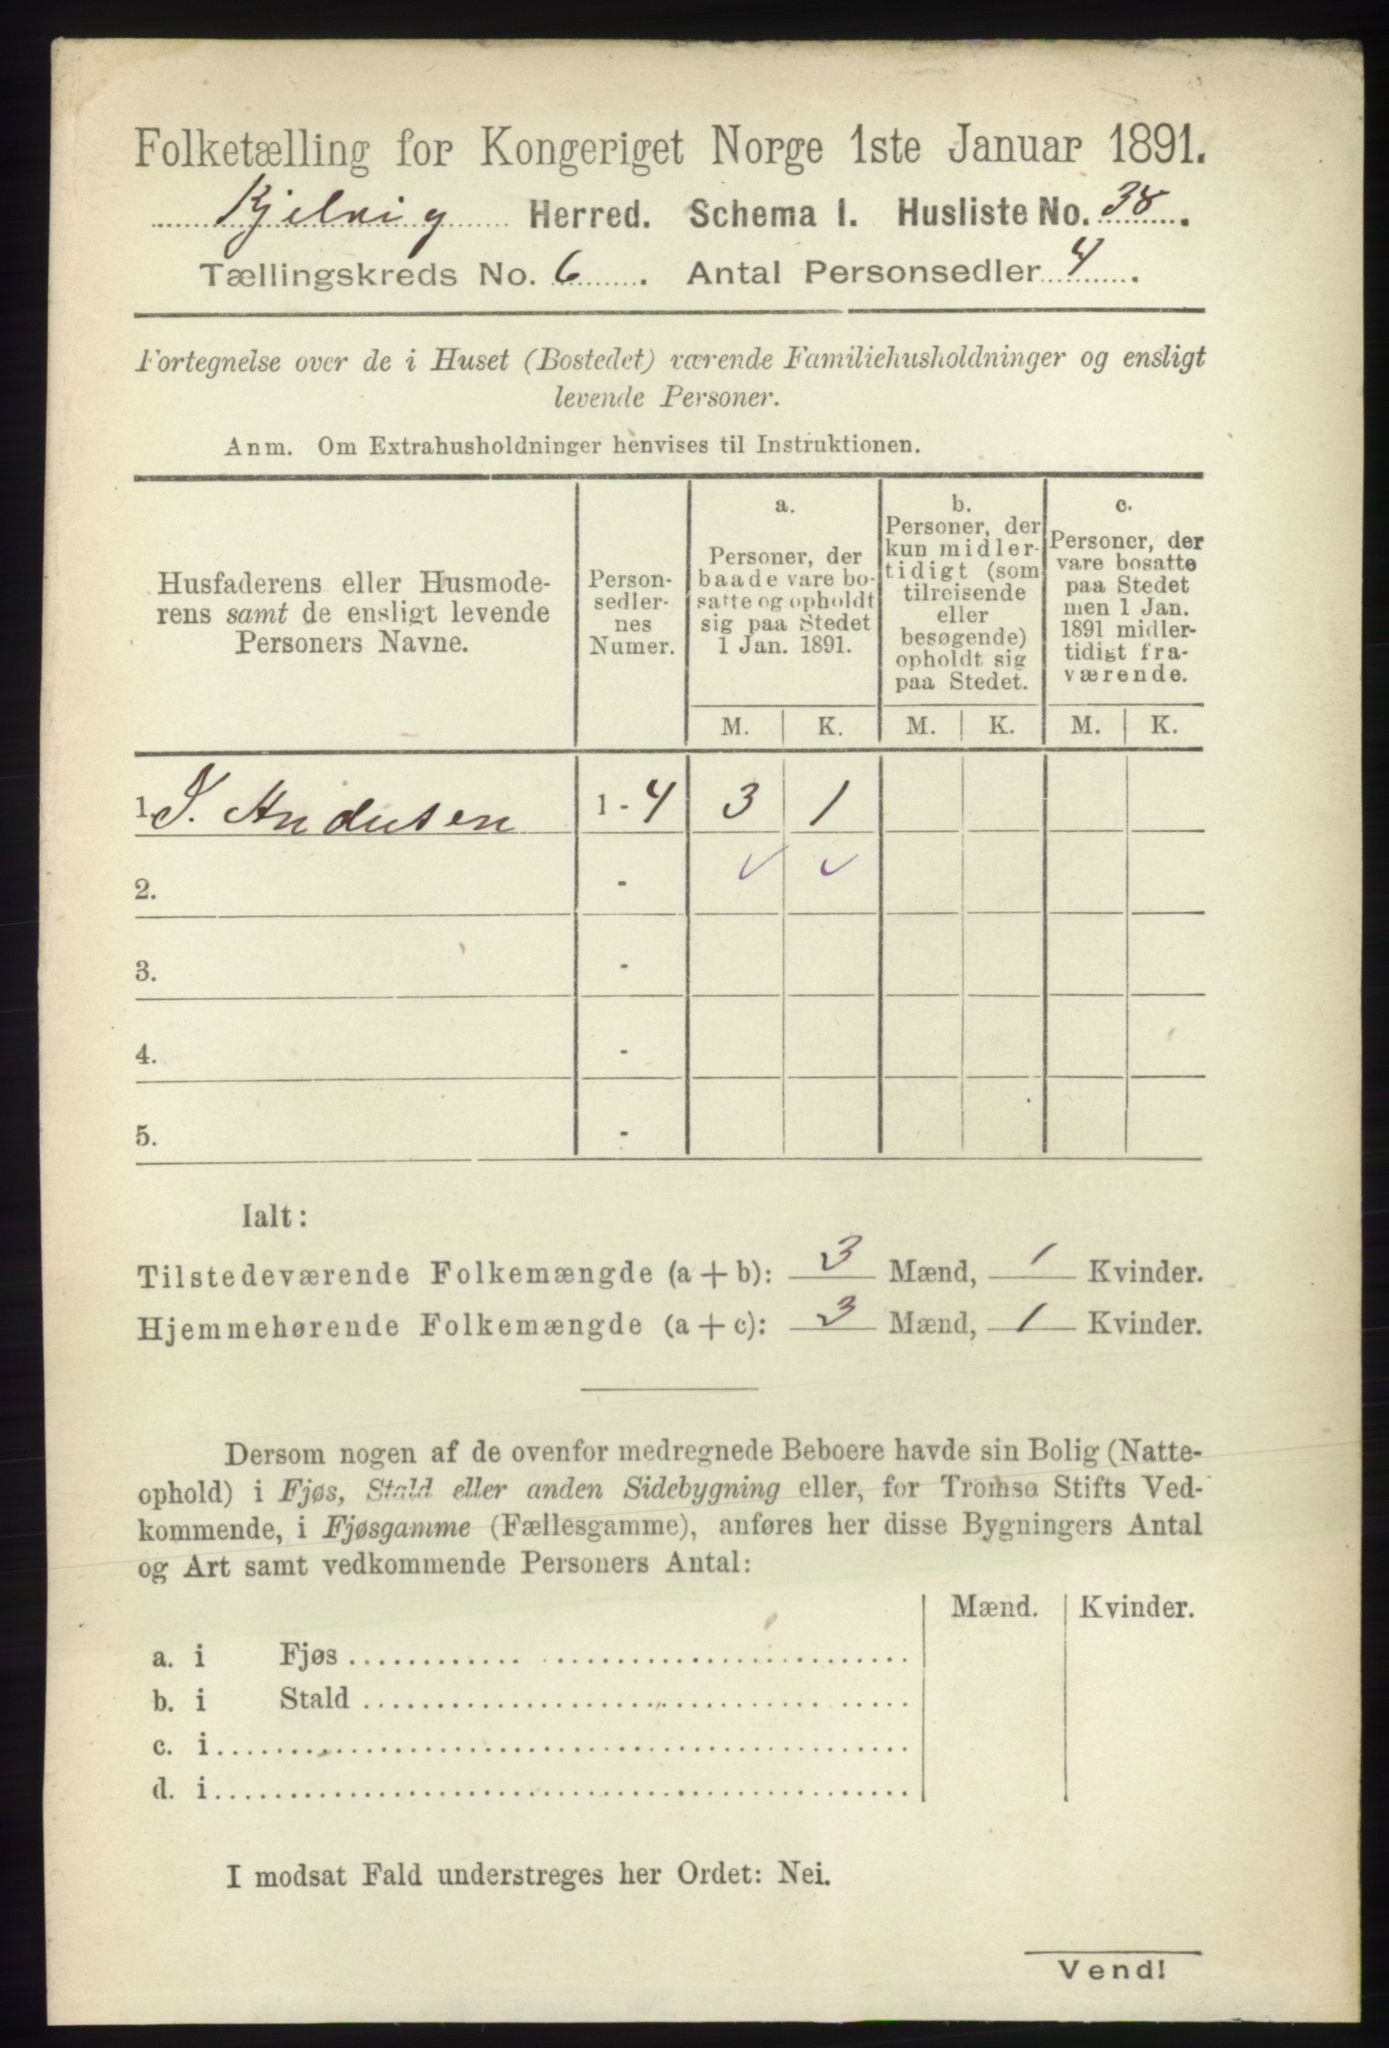 Folketælling for Kongeriget Norge 1ste Januar 1891.
Kjelvig Herred. Schema I. Husliste No. 38.
Tællingskreds No. 6. Antal Personsedler 4.
Fortegnelse over de i Huset (Bostedet) værende Familiehusholdninger og ensligt
levende Personer.
Anm. Om Extrahusholdninger henvises til Instruktionen.
Husfaderens eller Husmode-
rens samt de ensligt levende
Personers Navne.
Person-
sedler-
nes
Numer.
a.
Personer, der
baade vare bo-
satte og opholdt
sig paa Stedet
1 Jan. 1891.
b.
Personer, der
kun midler-
tidigt (som
tilreisende
eller
besøgende)
opholdt sig
paa Stedet.
c.
Personer, der
vare bosatte
paa Stedet
men 1 Jan.
1891 midler-
tidigt fra-
værende.
M. K. M. K. M. K.
1. J. Andersen 1 - 4 3 1
2. - ✓ ✓
3. -
4. -
5. -
Ialt:
Tilstedeværende Folkemængde (a + b): 3 Mænd, 1 Kvinder.
Hjemmehørende Folkemængde (a + c): 3 Mænd, 1 Kvinder.
Dersom nogen af de ovenfor medregnede Beboere havde sin Bolig (Natte-
ophold) i Fjøs, Stald eller anden Sidebygning eller, for Tromsø Stifts Ved-
kommende, i Fjøsgamme (Fællesgamme), anføres her disse Bygningers Antal
og Art samt vedkommende Personers Antal:
Mænd. Kvinder.
a. i Fjøs
b. i Stald
c. i
d. i
I modsat Fald understreges her Ordet: Nei.
Vend!